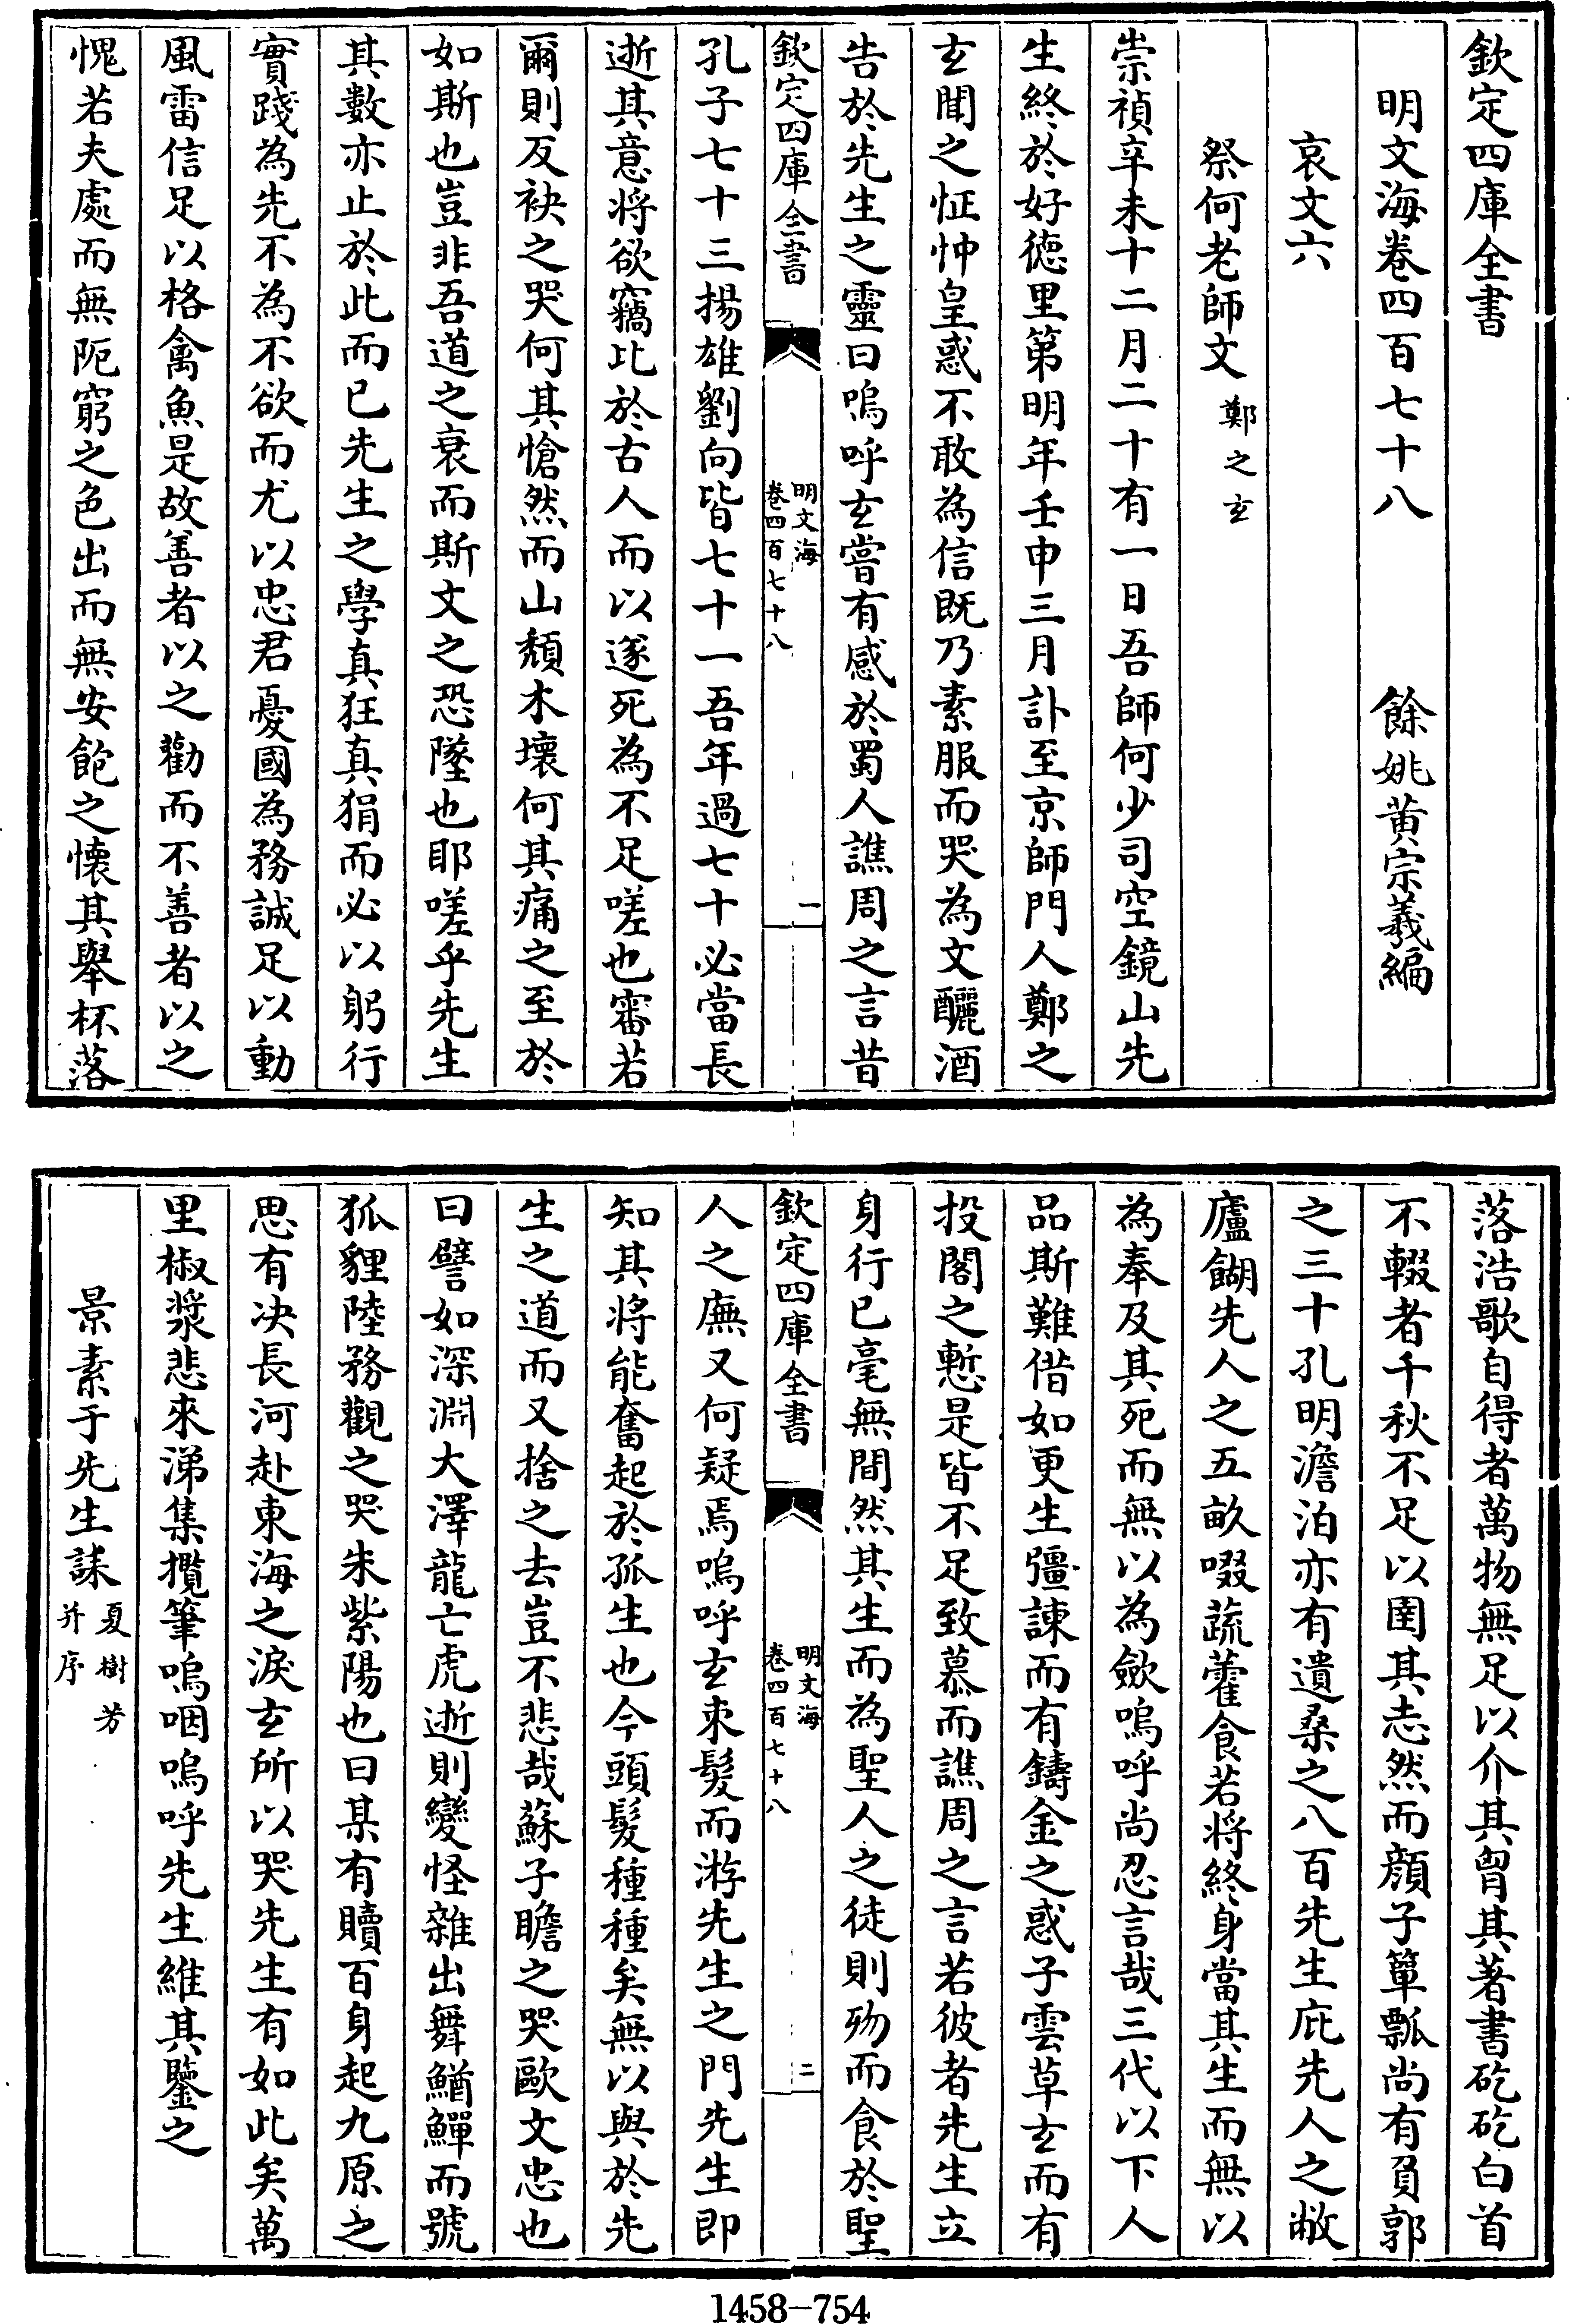 欽定四庫全書
明文海卷四百七十八　餘姚黃宗羲編
哀文六
祭何老師文 鄭之玄
崇禎辛未十二月二十有一日吾師何少司空鏡山先
生終於好德里第明年壬申三月訃至京師門人鄭之
玄聞之怔忡皇惑不敢為信既乃素服而哭為文釃酒
告於先生之靈曰嗚呼玄嘗有感於蜀人譙周之言昔
欽定四庫全書
明文海
卷四百七十八
一
孔子七十三揚雄劉向皆七十一吾年過七十必當長
逝其意將欲竊比於古人而以遂死為不足嗟也審若
爾則反袂之哭何其愴然而山頹木壞何其痛之至於
如斯也豈非吾道之衰而斯文之恐墜也耶嗟乎先生
其數亦止於此而已先生之學真狂真狷而必以躬行
實踐為先不為不欲而尤以忠君憂國為務誠足以動
風雷信足以格禽魚是故善者以之勸而不善者以之
愧若夫處而無阨窮之色出而無安飽之懷其舉杯落
落浩歌自得者萬物無足以介其胷其著書矻矻白首
不輟者千秋不足以圉其志然而顏子簞瓢尚有負郭
之三十孔明澹泊亦有遺桑之八百先生庇先人之敝
廬餬先人之五畝啜蔬藿食若將終身當其生而無以
為奉及其死而無以為歛嗚呼尚忍言哉三代以下人
品斯難借如更生彊諫而有鑄金之惑子雲草玄而有
投閣之慙是皆不足致慕而譙周之言若彼者先生立
身行已毫無間然其生而為聖人之徒則歿而食於聖
欽定四庫全書
明文海
卷四百七十八
二
人之廡又何疑焉嗚呼玄束髮而游先生之門先生即
知其將能奮起於孤生也今頭髮種種矣無以與於先
生之道而又捨之去豈不悲哉蘇子瞻之哭歐文忠也
曰譬如深淵大澤龍亡虎逝則變怪雜出舞鰌鱓而號
狐貍陸務觀之哭朱紫陽也曰某有贖百身起九原之
思有决長河赴東海之淚玄所以哭先生有如此矣萬
里椒漿悲來涕集攬筆嗚咽嗚呼先生維其鑒之
景素于先生誄 夏樹芳
并序
1458-754